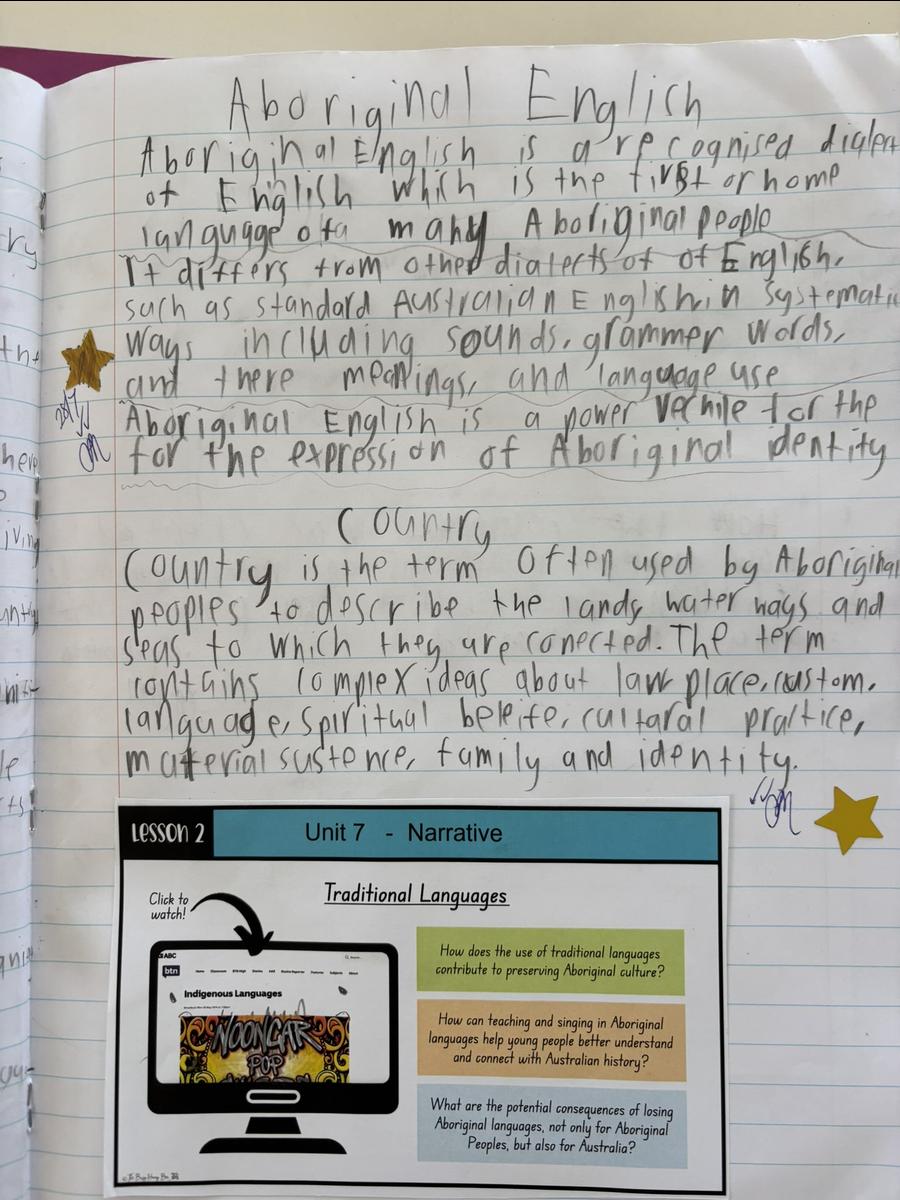 Aboriginal English
Aboriginal English is a recognised dialect
of English which is the first or home
language ofa many Aboriginal people
It differs from other dialects of of English,
such as standard Australian English in systematic
ways including sounds, grammer words,
and there meanings, and language use
Aboriginal English is a power vehile for the
for the expression of Aboriginal identity
Country
Country is the term Often used by Aboriginal
peoples to describe the lands, water ways and
seas to which they are conected. The term
contains complex ideas about law place, custom,
language, spiritual beleife, cultaral practice,
material sustence, family and identity.
LESSON 2
Unit 7 - Narrative
Traditional Languages
Click to
watch!
ABC
btn
Indigenous Languages
NOONGAR
POP
How does the use of traditional languages
contribute to preserving Aboriginal culture?
How can teaching and singing in Aboriginal
languages help young people better understand
and connect with Australian history?
What are the potential consequences of losing
Aboriginal languages, not only for Aboriginal
Peoples, but also for Australia?